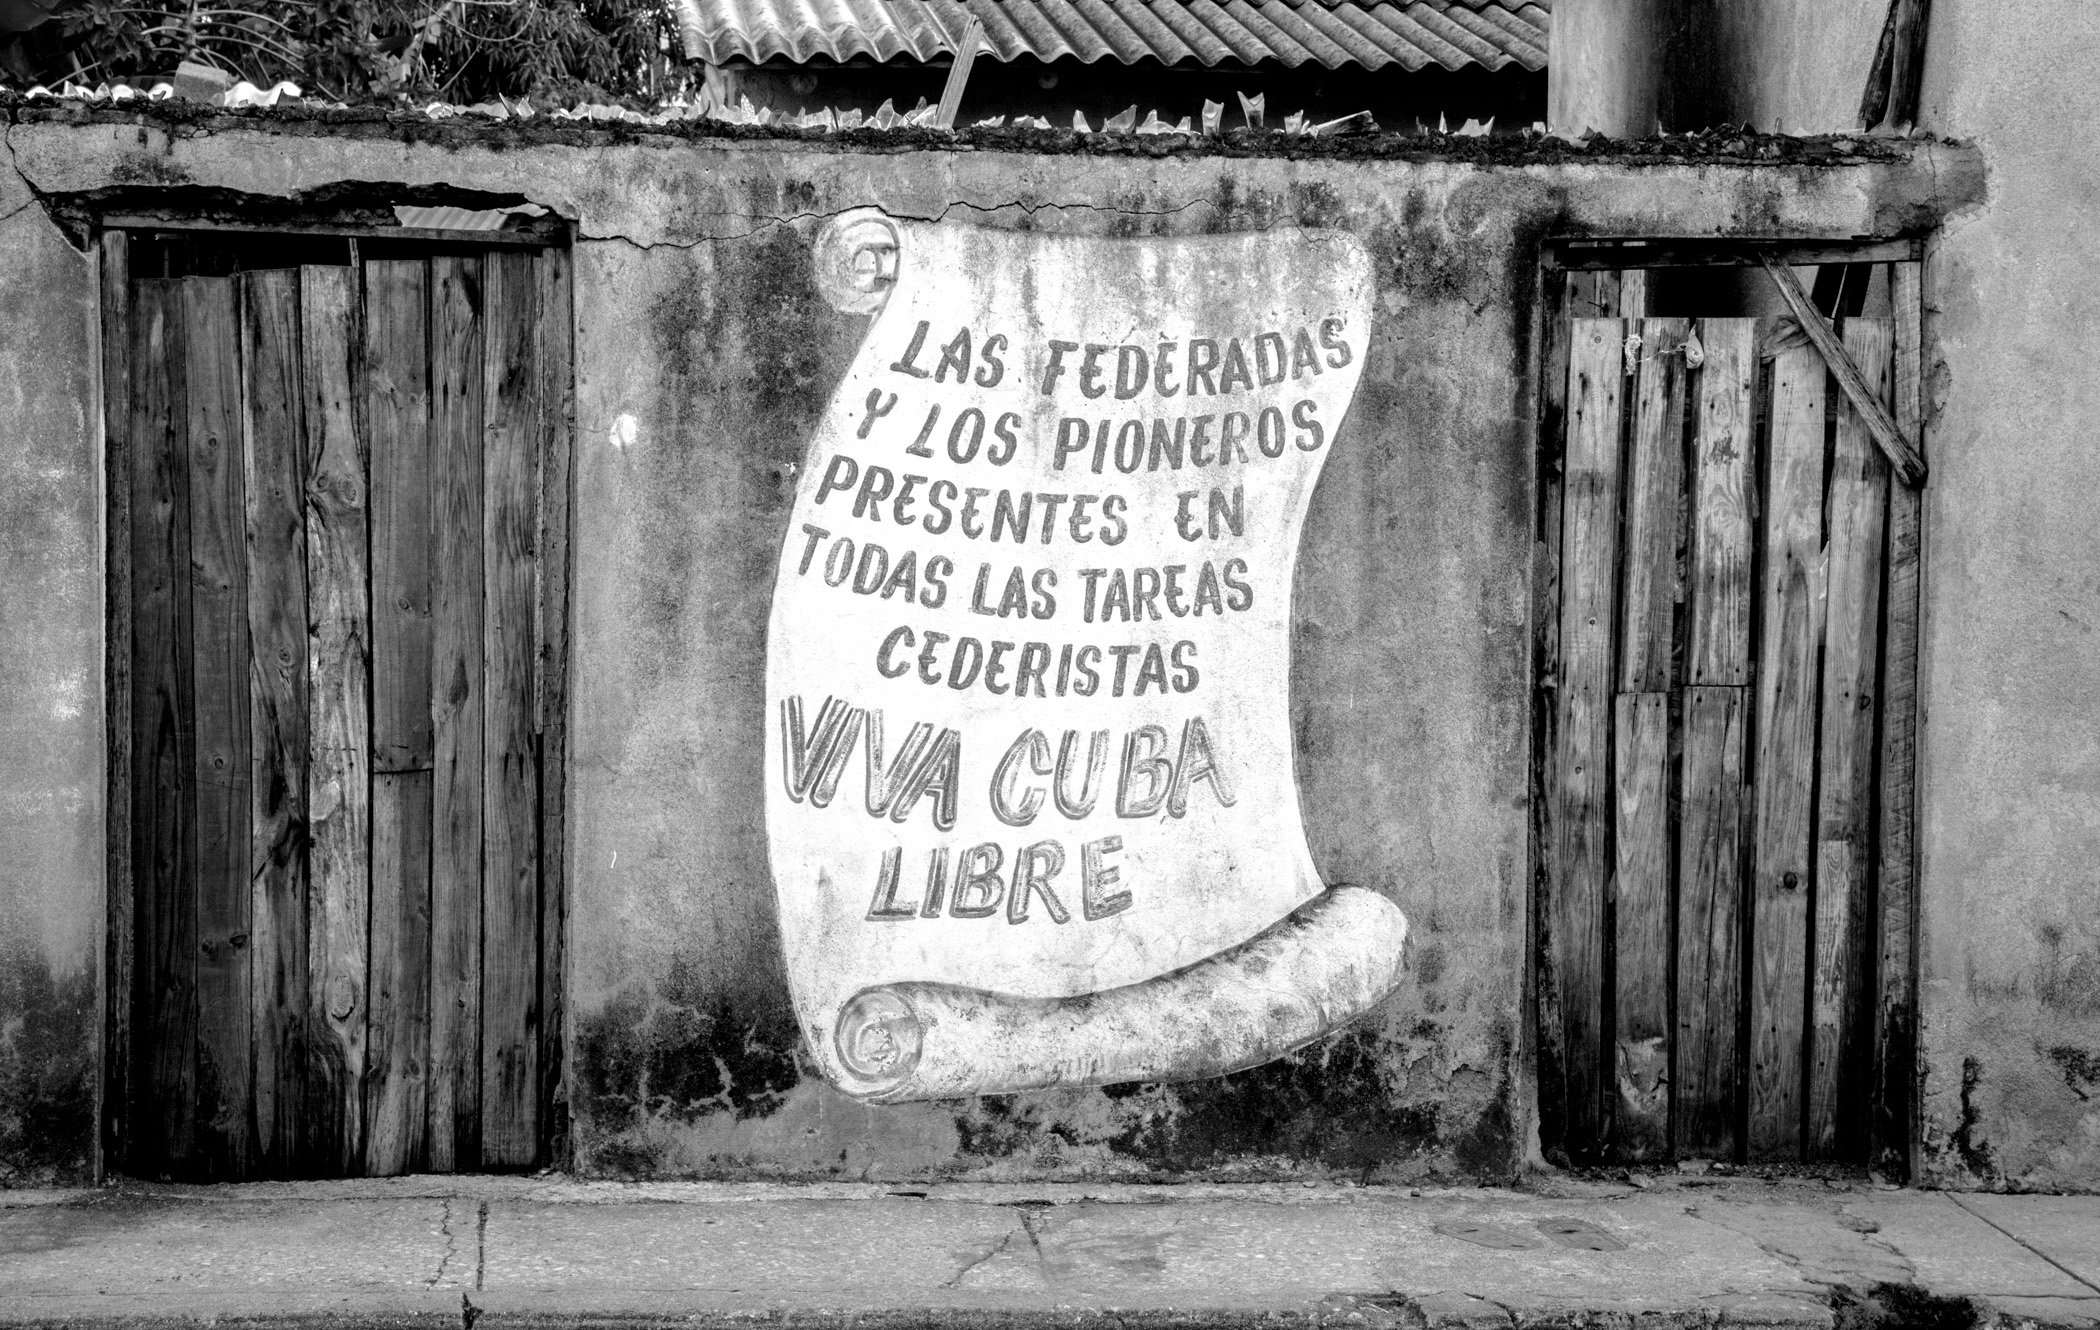 LAS FEDERADAS
Y LOS PIONEROS
PRESENTES EN
TODAS LAS TAREAS
CEDERISTAS
VIVA CUBA
LIBRE